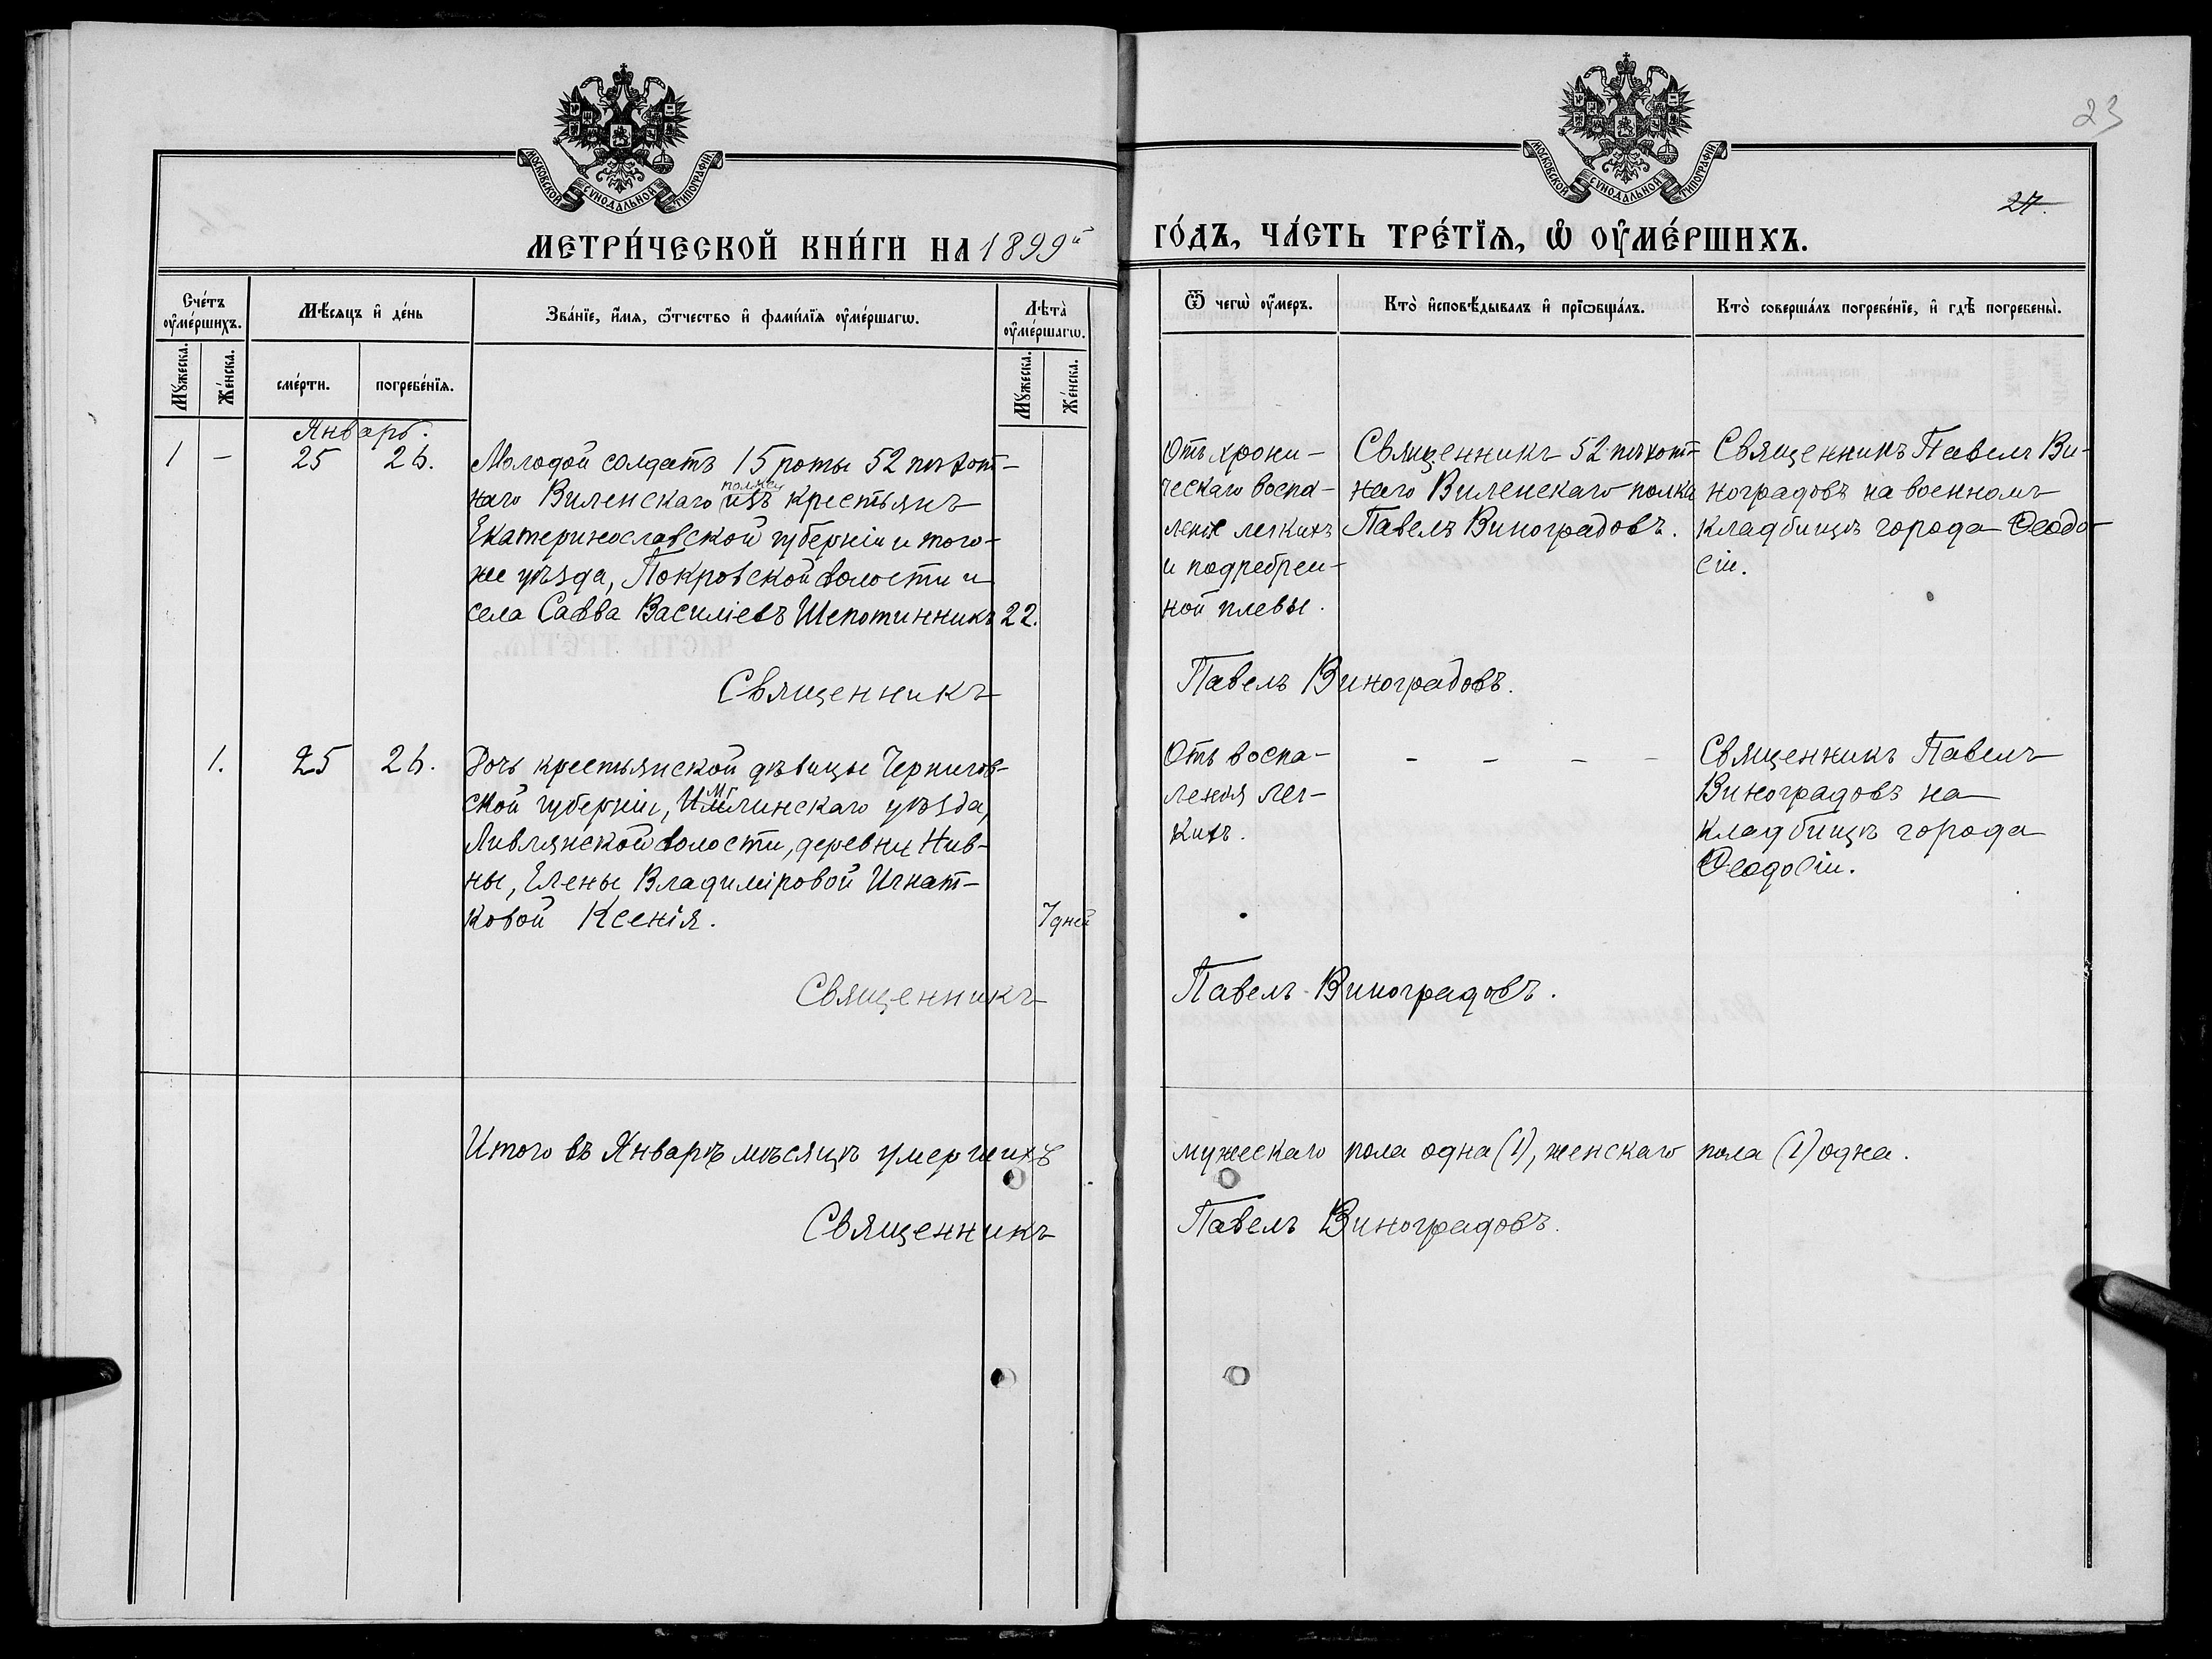 МОСКОВСКОЙ СѴНОДАЛЬНОЙ ТИПОГРАФІИ
МОСКОВСКОЙ СѴНОДАЛЬНОЙ ТИПОГРАФІИ
23
27.
МЕТРИ́ЧЕСКОЙ КНИ́ГИ НА 1899й
ГО́ДЪ, ЧА́СТЬ ТРЕ́ТІѦ, Ѽ ОУ҆МЕ́РШИХЪ.
Сче́тъ оу҆ме́ршихъ.
Мѣ́сѧцъ и҆ де́нь
Зва́нїе, и҆́мѧ, ѻ҆́тчество и҆ фами́лїѧ оу҆ме́ршагѡ.
Лѣ́та оу҆ме́ршагѡ.
Ѿ чегѡ̀ оу҆́меръ.
Кто̀ и҆сповѣ́дывалъ и҆ прїѡбща́лъ.
Кто̀ соверша́лъ погребе́нїе, и҆ гдѣ̀ погребены̀.
Мꙋ́жеска.
Же́нска.
сме́рти.
погребе́нїѧ.
Мꙋ́жеска.
Же́нска.
Январь.
1 – 25 26. Молодой солдатъ 15 роты 52 пѣхот-
наго Виленскаго полка изъ крестьянъ
Екатеринославской губерніи и того-
же уѣзда, Покровской волости и
села Савва Василіевъ Шепотинникъ 22.
Отъ хрони-
ческаго воспа-
ленія легкихъ
и подребрен-
ной плевы.
Священникъ 52 пѣхот-
наго Виленскаго полка
Павелъ Виноградовъ.
Священникъ Павелъ Ви-
ноградовъ на военномъ
кладбищѣ города Ѳеодо-
сіи.
Священникъ Павелъ Виноградовъ.
1. 25 26. Дочь крестьянской дѣвицы Чернигов-
ской губерніи, Мглинскаго уѣзда,
Ливлянской волости, деревни Нив-
ны, Елены Владиміровой Игнат-
ковой Ксенія. 7 дней
Отъ воспа-
ленія лег-
кихъ.
- - - -
Священникъ Павелъ
Виноградовъ на
кладбищѣ города
Ѳеодосіи.
Священникъ Павелъ Виноградовъ.
Итого въ Январѣ мѣсяцѣ умершихъ мужескаго пола одна (1), женскаго пола (1) одна.
Священникъ Павелъ Виноградовъ.